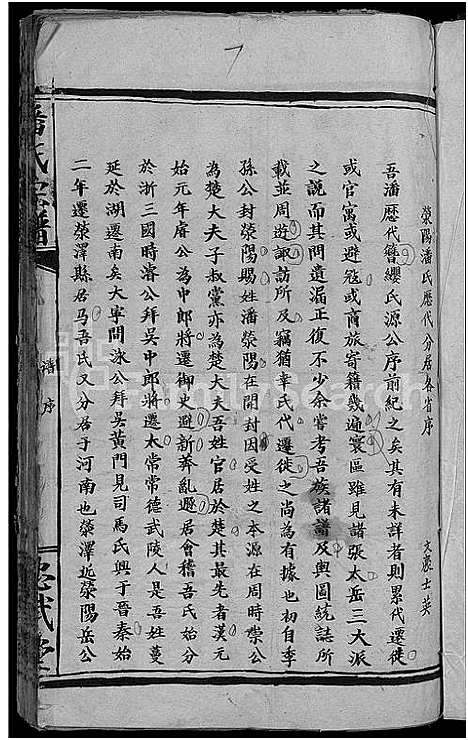 7
滎陽潘氏歷代分居各省序
文巖士英
吾潘歷代簪纓氏源公序前紀之矣其有未詳者則累代遷徙
或官寓或避寇或商旅寄籍幾遍寰區雖見諸張太岳三大派
之說而其問遺漏正復不少余嘗考吾族諸譜及輿圖統誌所
載並周遊諏訪所及竊猶幸氏代遷徙之尚為有據也初自季
孫公封滎陽賜姓潘滎陽在開封因受姓之本源在周時崇公
為楚大夫子叔黨亦為楚大夫吾姓官居於楚其最先者漢元
始元年睿公為中郎將遷御史避新莽亂遯居會稽吾氏始分
於浙三國時濬公拜吳中郎將遷太常常德武陵人是吾姓蔓
延於湖遷南矣大寧間泳公拜吴黃門見司馬氏興于晉秦始
二年遷滎澤縣居马吾氏又分居于河南也滎澤近滎陽岳公
潘氏宗譜
潘序
忠武堂
FamilySearch